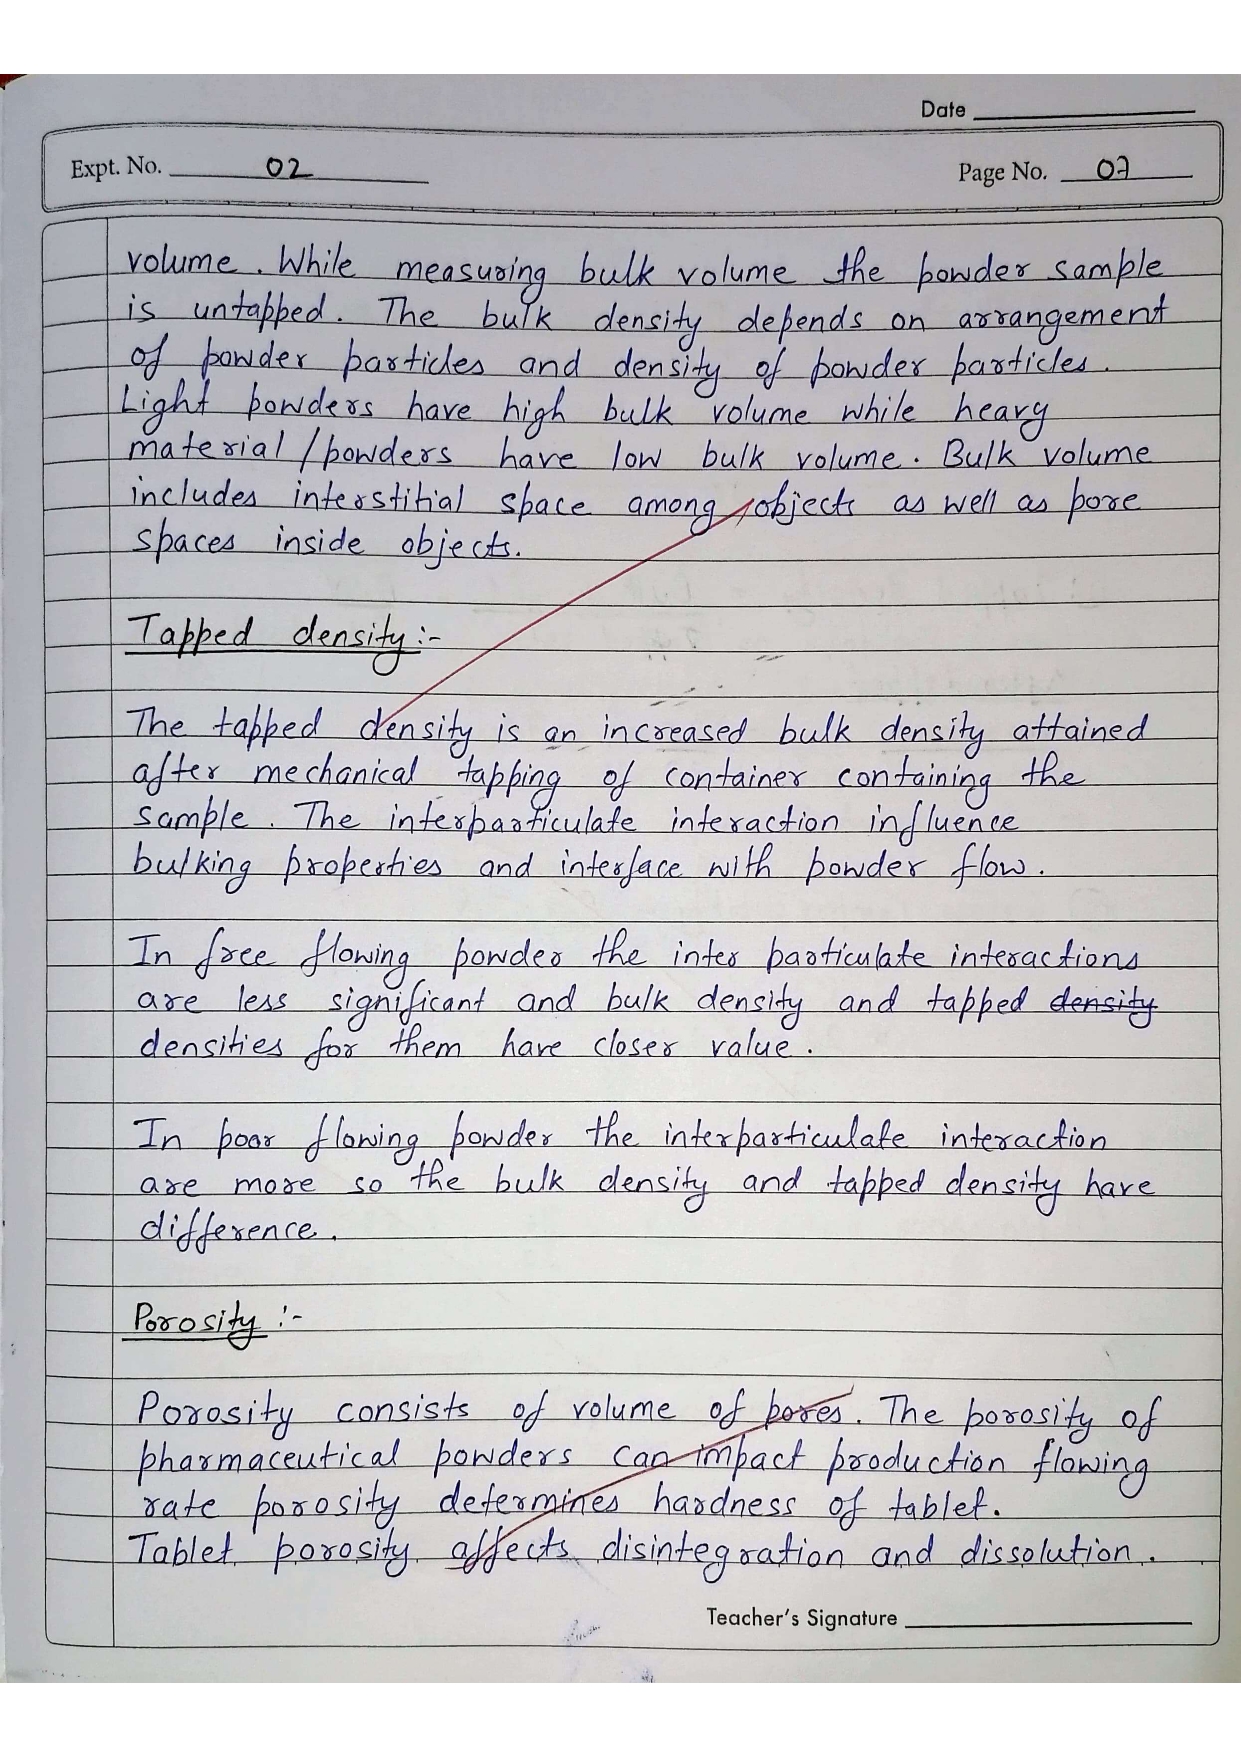 Date
Expt. No. 02
Page No. 07
volume. While measuring bulk volume the powder sample
is untapped. The bulk density depends on arrangement
of powder particles and density of powder particles.
Light powders have high bulk volume while heavy
material/powders have low bulk volume. Bulk volume
includes interstitial space among objects as well as pore
spaces inside objects.
Tapped density :-
The tapped density is an increased bulk density attained
after mechanical tapping of container containing the
sample. The interparticulate interaction influence
bulking properties and interface with powder flow.
In free flowing powder the inter particulate interactions
are less significant and bulk density and tapped density
densities for them have closer value.
In poor flowing powder the interparticulate interaction
are more so the bulk density and tapped density have
difference.
Porosity :-
Porosity consists of volume of pores. The porosity of
pharmaceutical powders can impact production flowing
rate porosity determines hardness of tablet.
Tablet porosity affects disintegration and dissolution.
Teacher's Signature